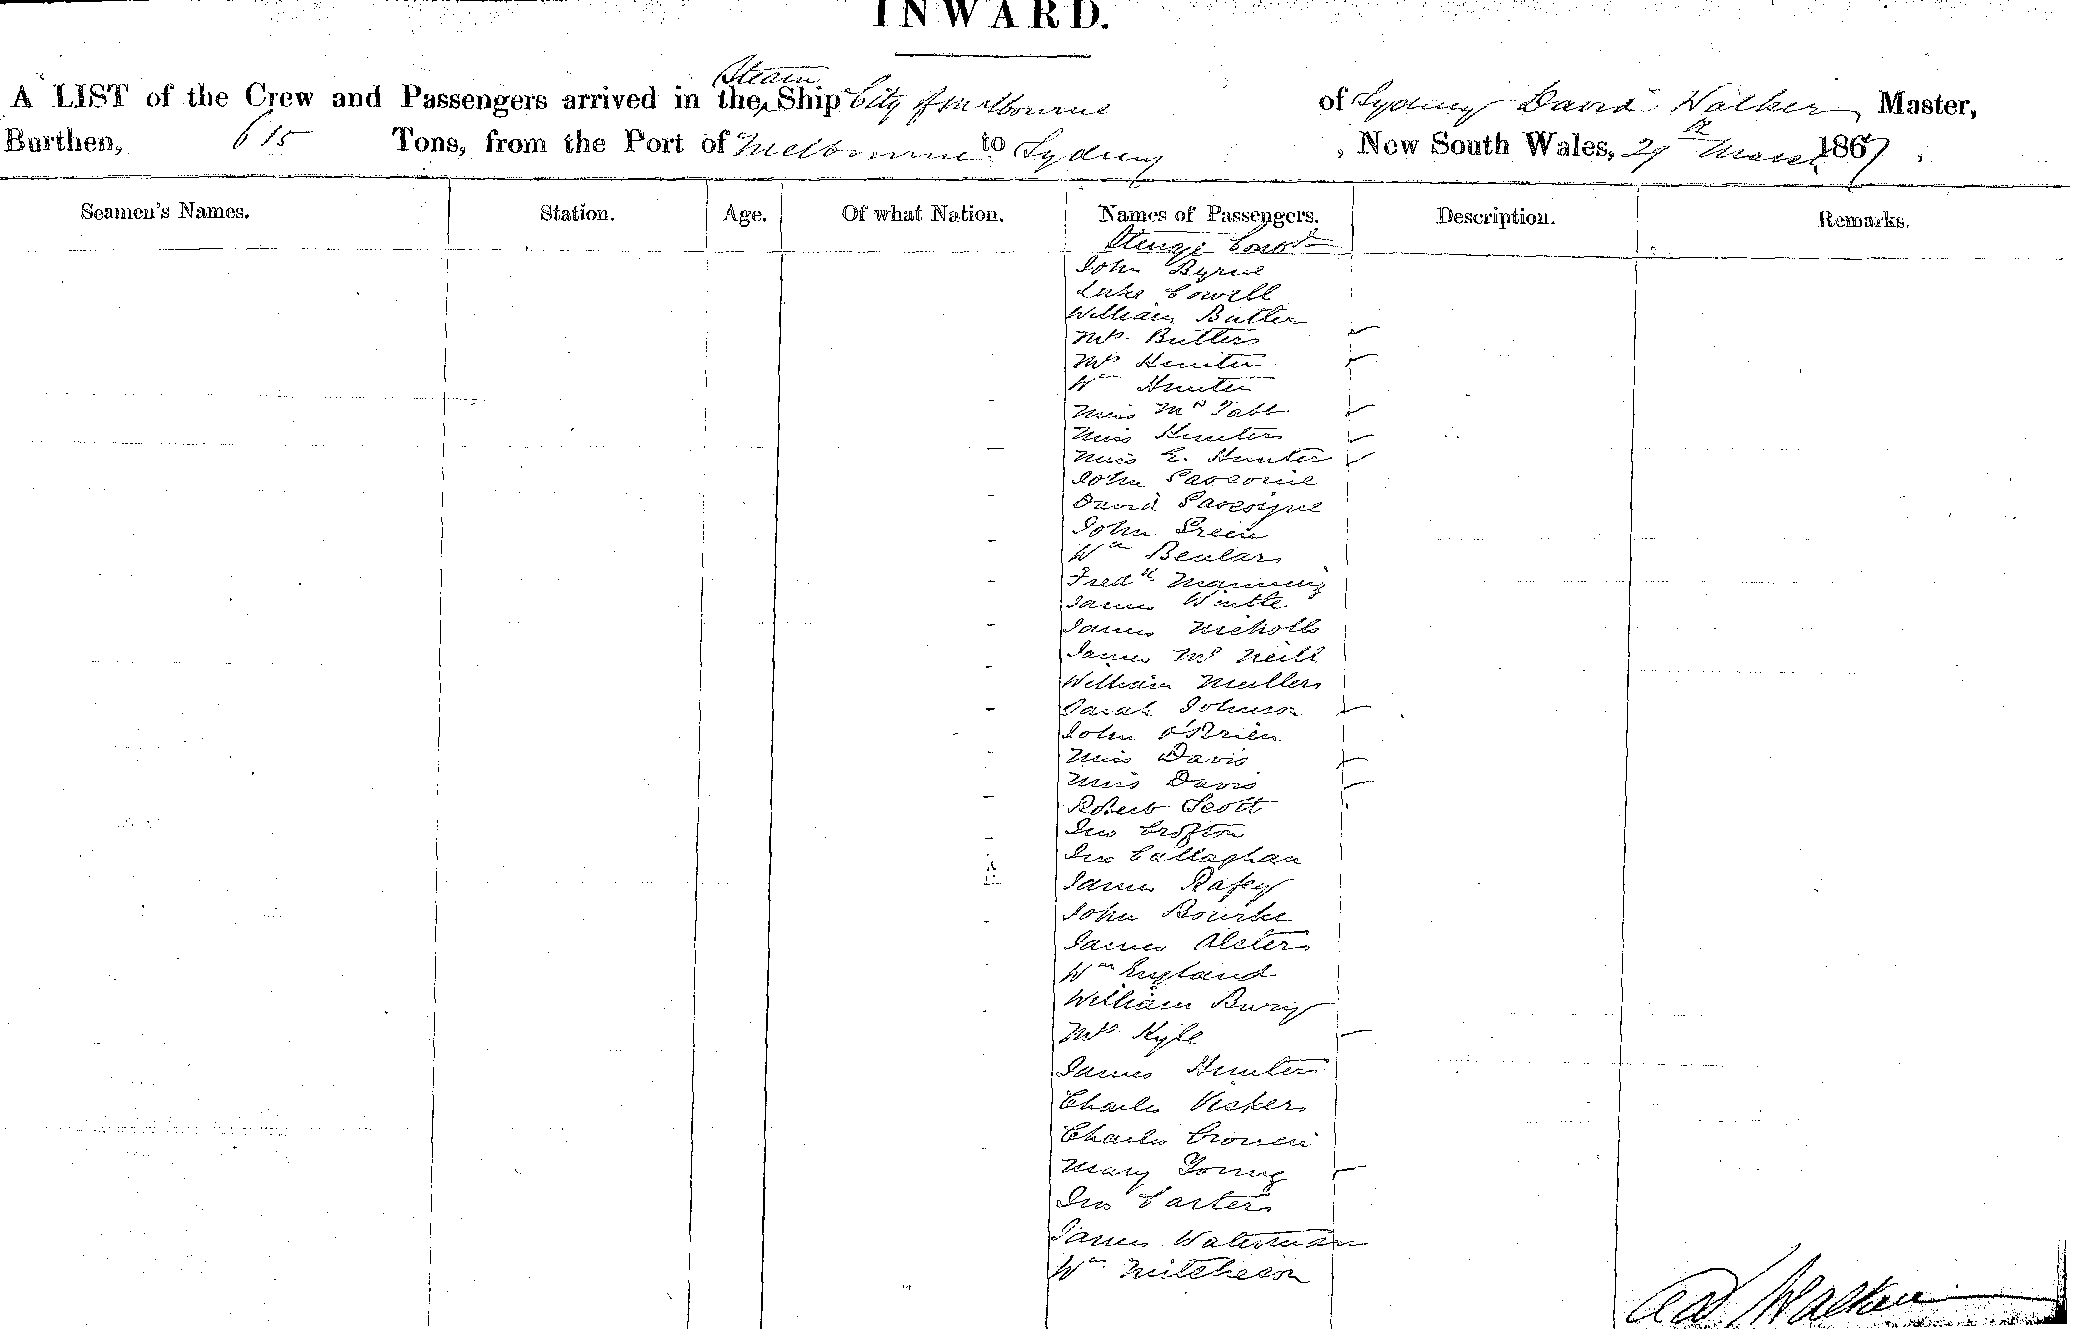 INWARD.
Steam
A LIST of the Crew and Passengers arrived in the Ship City of Melbourne of Sydney David Walker, Master,
Burthen, 615 Tons, from the Port of Melbourne to Sydney, New South Wales, 29th March 1867,
Seamen's Names. Station. Age. Of what Nation. Names of Passengers. Description. Remarks.
Steerage Contd
John Byrne
Luke Cowell
William Butler
Mrs Butler
Mrs Hunter
Wm Hunter
Miss Tabb
Miss Hunter
Miss E. Hunter
John Gascoine
David Gascoigne
John Green
Wm
Fredk Manning
James Wintle
James Nicholls
James McNeill
William Mullers
Sarah Johnson
John O'Brien
Miss Davis
Miss Davis
Robert Scott
Jno Crofton
Jno Callaghan
James Rafey
John Bourke
James
Wm England
William Burry
Mrs Kyle
James Hunter
Charles Vickers
Charles
Mary Young
Jno Carter
James Waterman
Wm Mitcheson
Walker